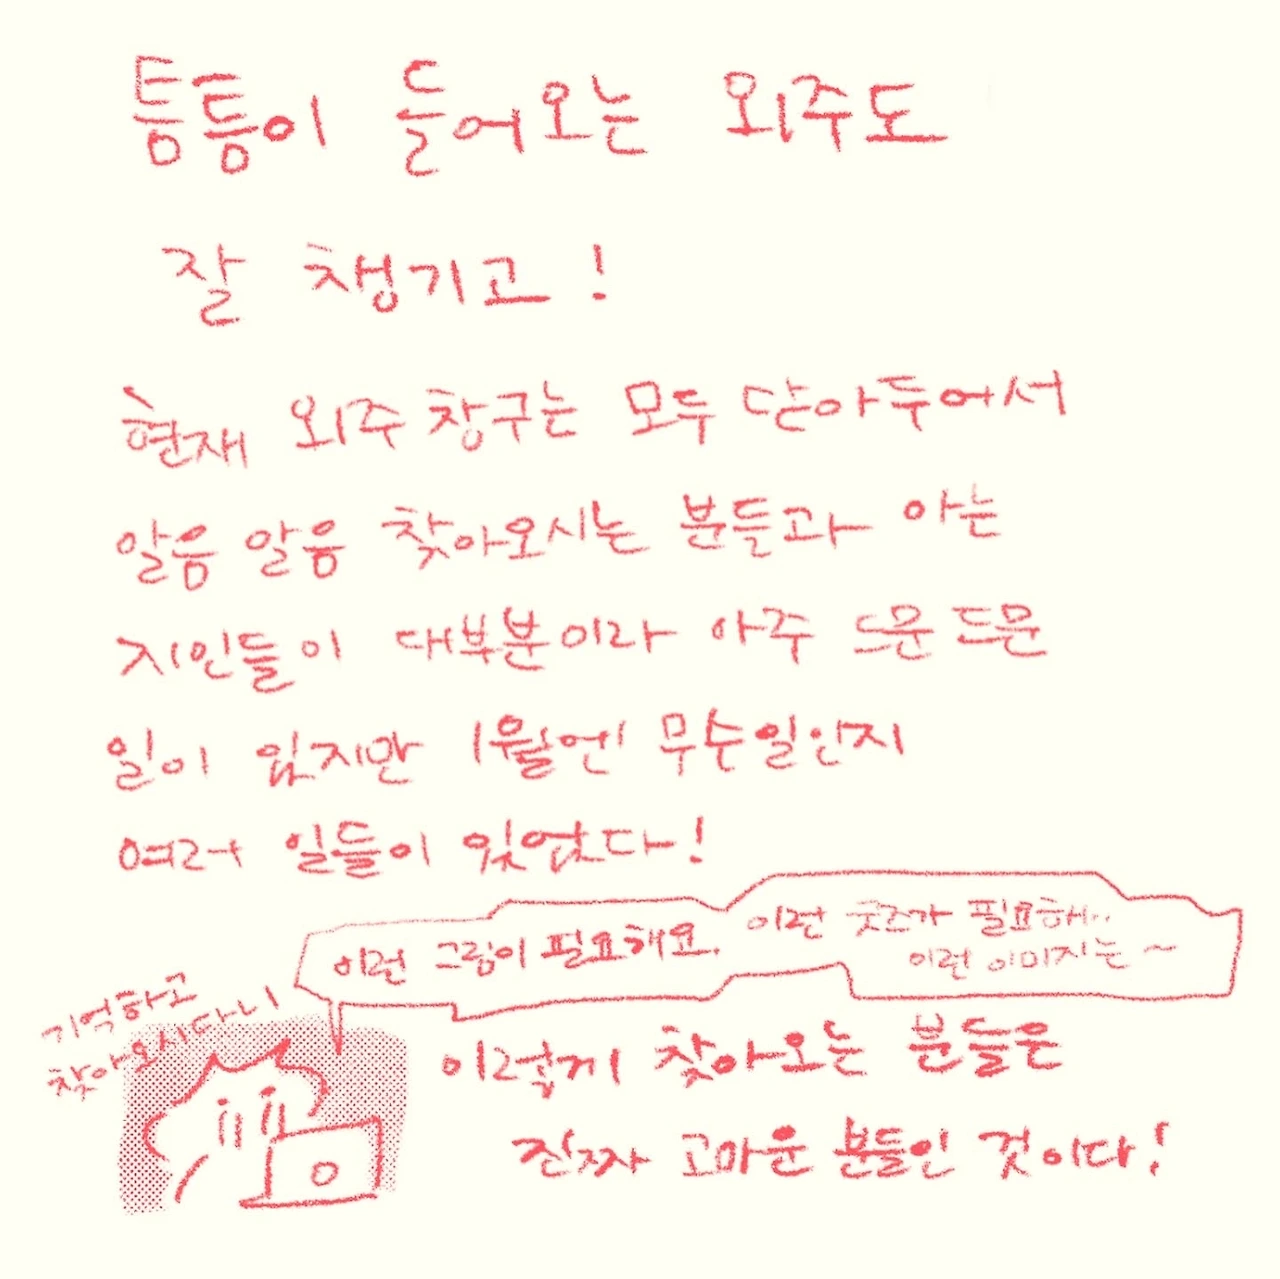 틈틈이 들어오는 외주도
잘 챙기고!
현재 외주 창구는 모두 닫아두어서
알음 알음 찾아오시는 분들과 아는
지인들이 대부분이라 아주 드문 드문
일이 있지만 1월엔 무수일인지
여러 일들이 있었다!
이런 그림이 필요해요. 이런 굿즈가 필요해..
이런 이미지는~
기억하고
찾아오시다니
이렇게 찾아오는 분들은
진짜 고마운 분들인 것이다!